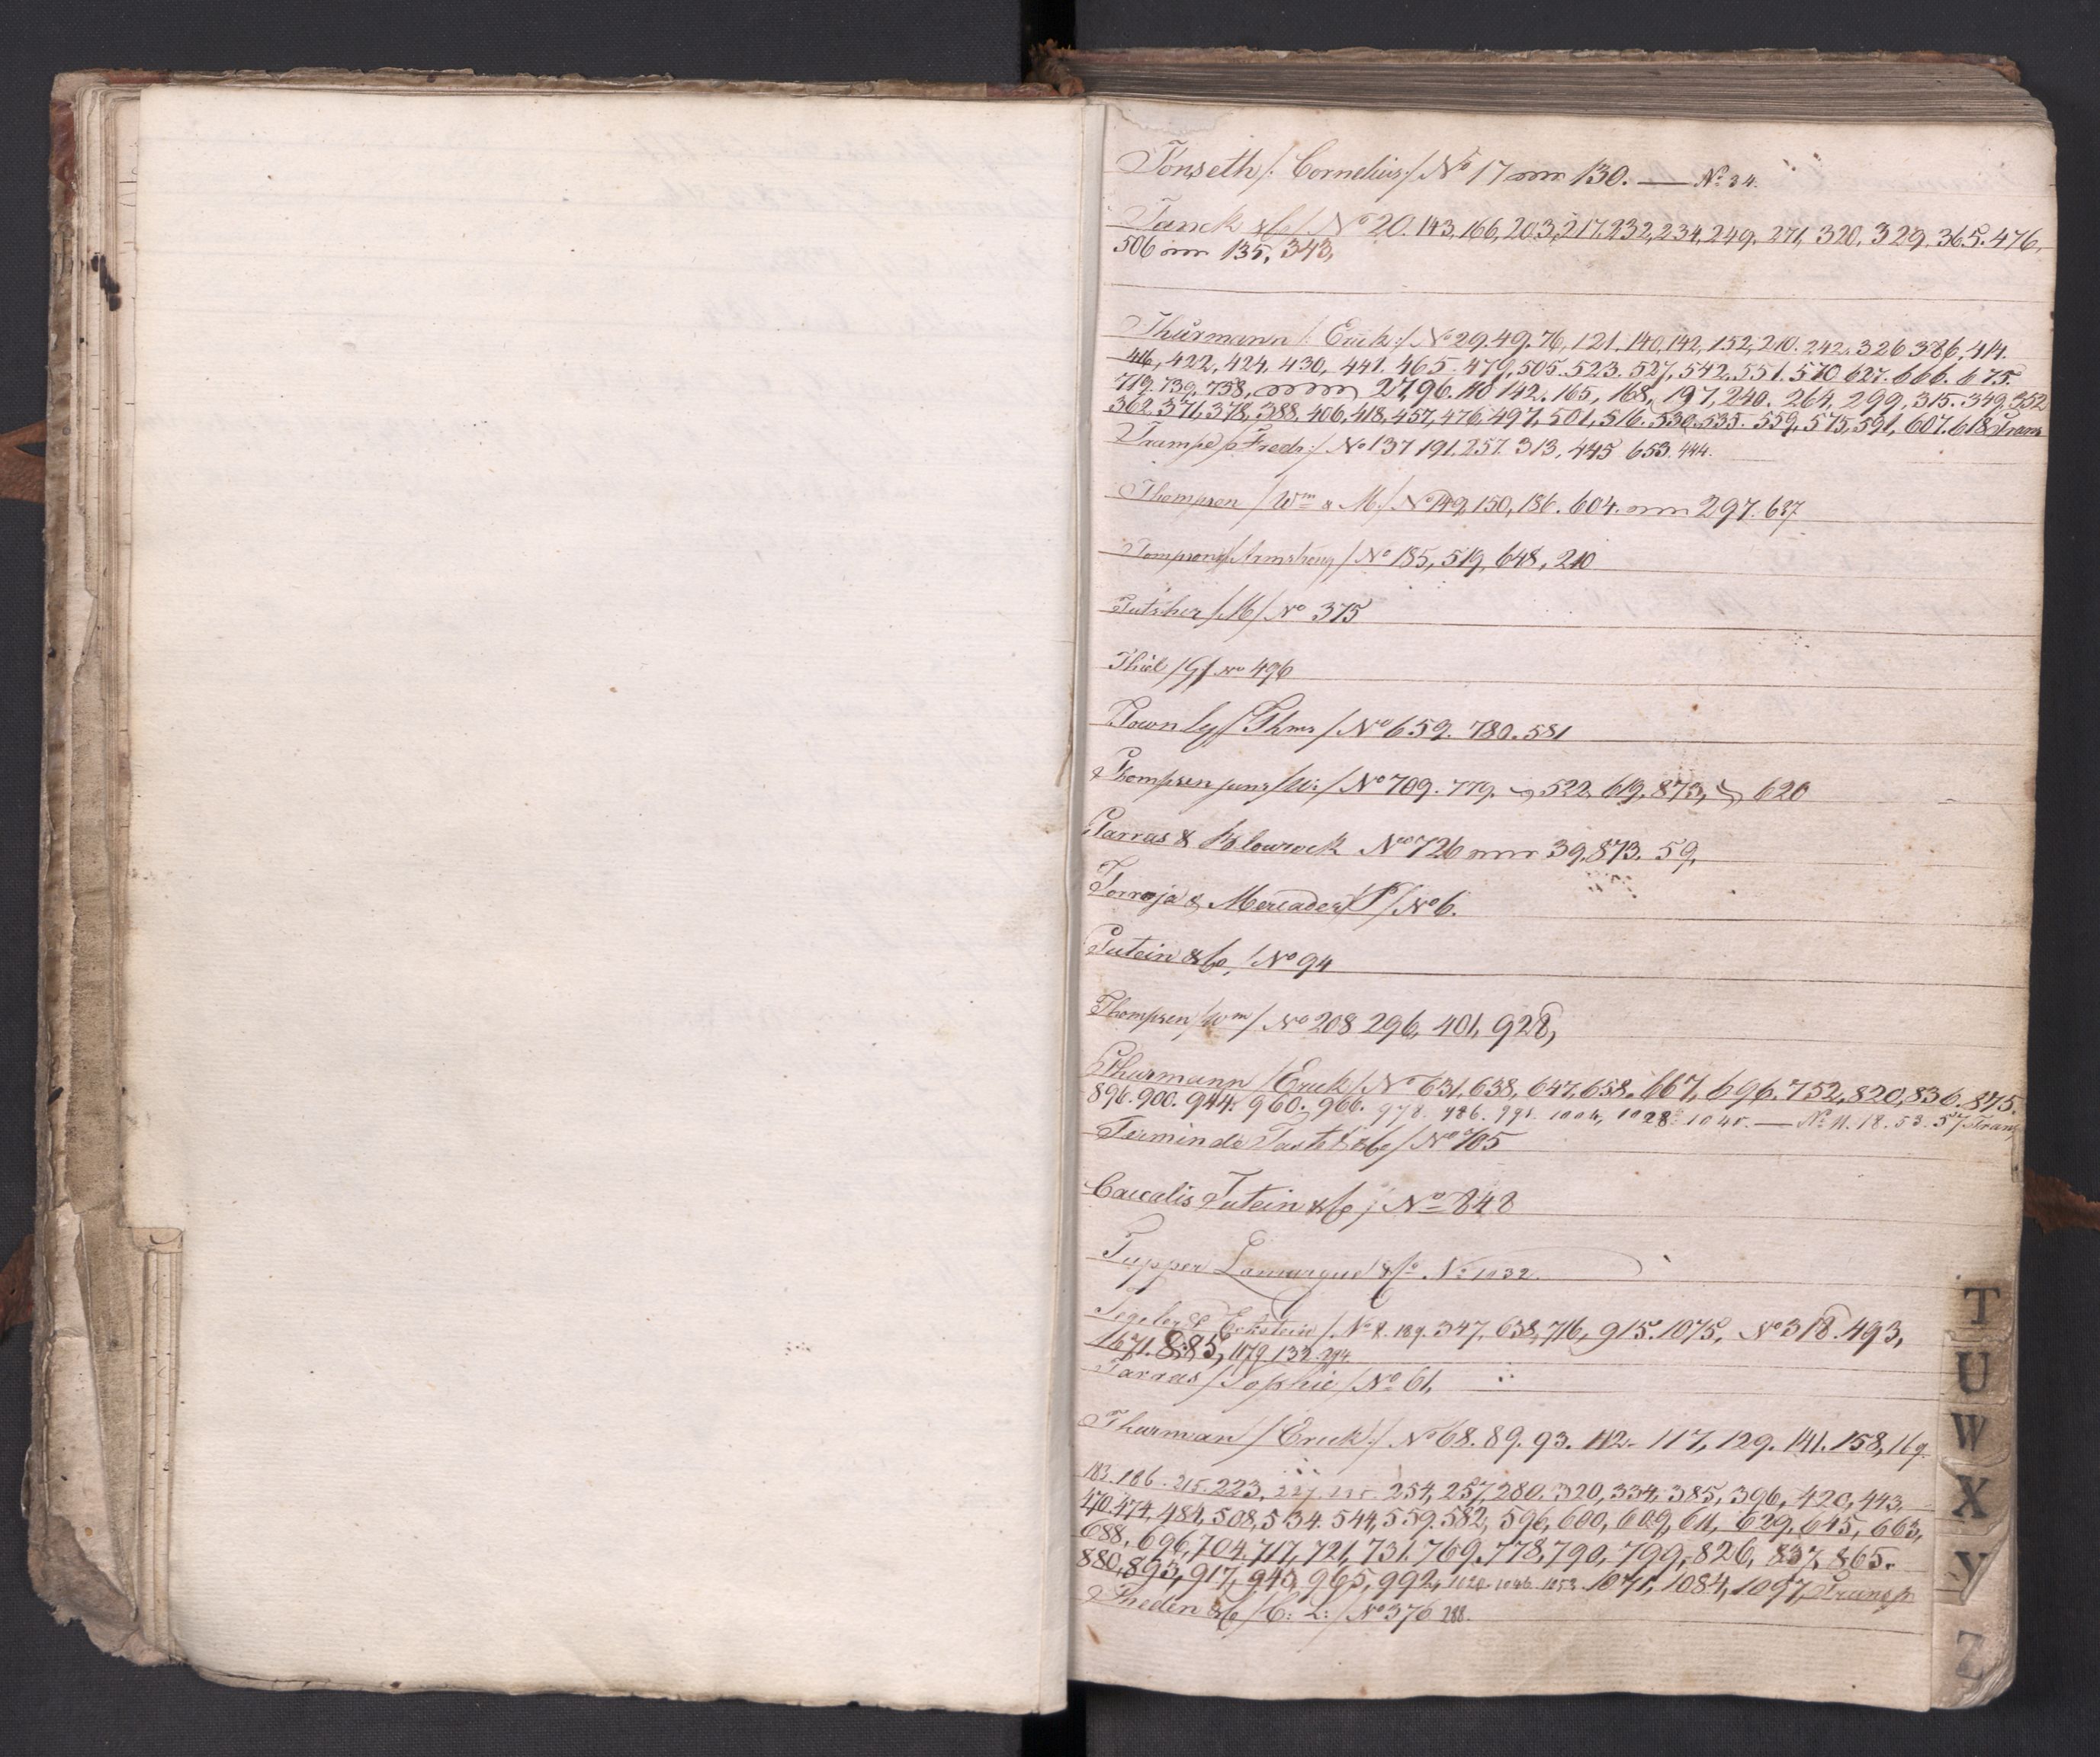 Tönseth /: Cornelius:/ No 17 130. — No 34.
Tanck & Co / No 20. 143, 166, 203, 217, 232, 234, 249, 271, 320, 329, 365. 476,
506 135, 343,
Thürmann /: Erick:/ No 29. 49. 76, 121. 140, 142, 152, 210. 242. 326 386, 414.
416, 422, 424. 430, 441. 465. 479, 505. 523. 527, 542. 551. 570 627. 666. 675.
719. 739. 758, 27, 96. 110 142. 165, 168, 197, 240. 264, 299, 315. 349, 352
362. 371, 378, 388, 406, 418, 457, 476, 497, 501, 516. 530. 535. 559, 575, 591, 607. 618 Trans
Trampe / Fredr:/ No 137 191. 257. 313, 445 653. 444.
Thompson / Wm & M / No 149, 150, 186. 604. 297. 637
Tompson / Armstrong / No 185, 519, 648, 210
Tutsher / M / No 375
Thiel / G / No 496
Townley / Thms / No 659. 780. 581
Thompsen junr / W: / No 709. 779. 522, 619, 873, 620
Tarras & Blowrock No 726 39, 873. 59,
Torroja & Mercader / P / No 6.
Tutein & Co, / No 94
Thompsen / Wm / No 208 296, 401, 928,
Thurmann / Erick / No 631, 638, 647, 658, 667, 696. 752, 820, 836. 875.
896. 900. 944. 960. 966. 978. 986. 991. 1004, 1028. 1045. — No 11. 18. 53. 57 Trans
Fermin de Tastet & Co / No 705
Caccalis Tutein & Co / No 848
Tupper Lamargue & Co No 1032.
Tegeler & Eckstein / No 8. 189. 347, 638, 716, 915. 1075, No 318. 493,
1671. 885, 1179 132. 294.
Tarras / Sophie / No 61,
Thurman / Erick:/ No 68. 89. 93. 112. 117, 129. 141. 158, 169.
183. 186. 215. 223, 227. 254, 257, 280. 320, 334, 385, 396, 420, 443,
470. 474, 484, 508, 534. 544, 559. 582, 596, 600, 609, 611, 629, 645, 663,
688, 696, 704. 717, 721, 731. 769. 778, 790, 799, 826, 837, 865.
880, 893, 917, 940, 965, 992, 1020. 1046. 1053. 1071, 1084, 1097, Transp
Theden & Co / C: L: / No 376 288.
T
U
W
X
Y
Z